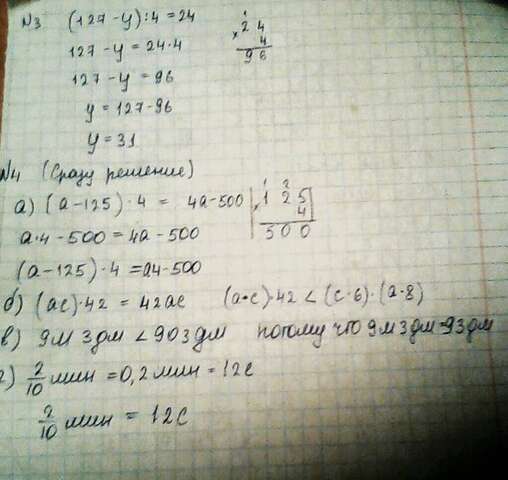 N3 (127-y):4=24
127-y=24·4
127-y=96
y=127-96
y=31
1
× 24
4
96
N4 (Сразу решение)
а) (a-125)·4 = 4a-500
a·4-500=4a-500
(a-125)·4=a4-500
1 2
× 125
4
500
б) (ac)·42 = 42ac (a·c)·42 < (c·6)·(a·8)
в) 9м 3дм < 903дм потому что 9м3дм=93дм
г) 2/10 мин = 0,2мин = 12с
2/10 мин = 12с